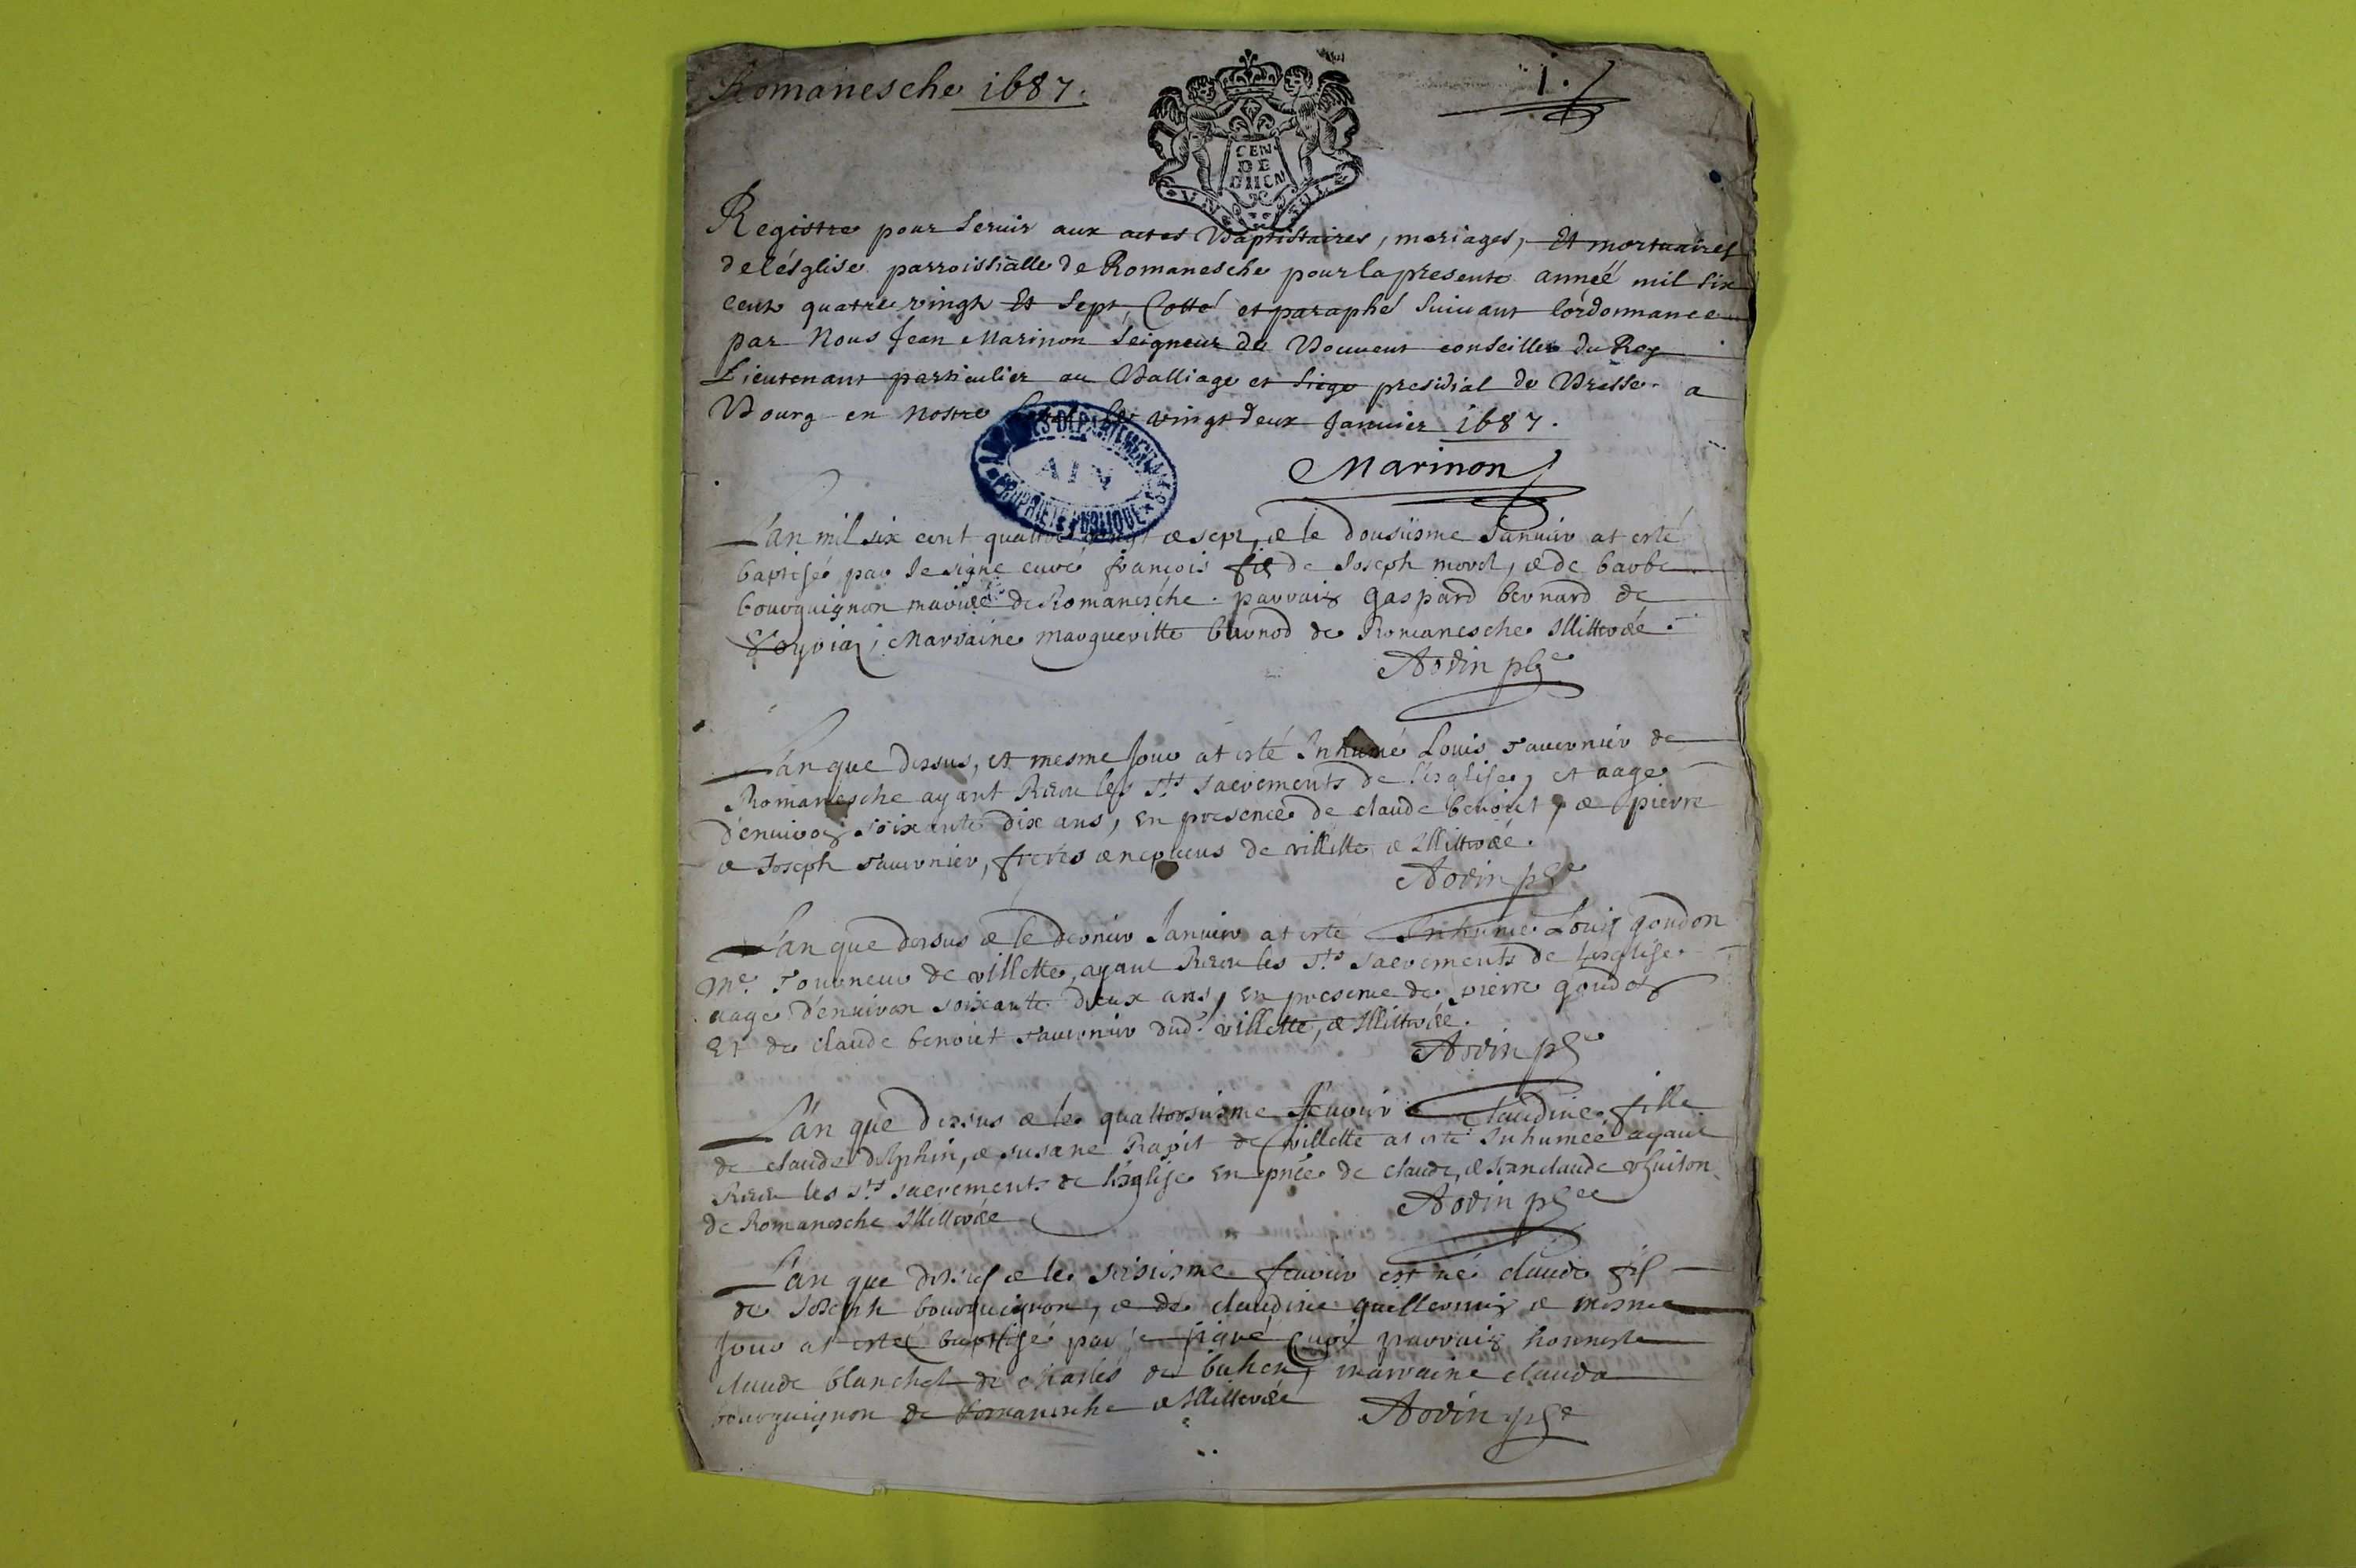 Romanesche 1687.
1.
CEN
DE
DIICN
Registre pour seruir aux actes Baptistaires, mariages, Et mortuaires
de lésglise parroissialle de Romanesche pour la presente anneé mil six
cent quatre vingt Et Sept, Cotté et paraphé suiuant lordonnance
par Nous Jean Marinon Seigneur de Bouuent conseiller du Roy
Lieutenant particulier au Balliage et siege presidial de Bresse a
Bourg en nostre le vingt deux Januier 1687.
Marinon
ARCHIVES DEPARTEMENTALES
AIN
PROPRIETE PUBLIQUE
L'an mil six cent quattre vingt & sept, & le dousiisme Januier at esté
baptisé par le signé curé françois fils de Joseph morel, & de barbe
bourguignon mariés de Romanesche. parrain gaspard bernard de
Marraine margueritte burnod de Romanesche Illitterée.
Aodin pbre
L'an que dessus, et mesme Jour at esté Inhumé Louis Tauernier de
Romanesche ayant Receu les Sts sacrements de l'esglise, et aage
d'enuiron soixante dix ans, en presence de claude benoist, & pierre
& Joseph Tauernier, freres & nepueus de villette & Illitterée.
Aodin pbre
L'an que dessus & le dernier Januier at esté Inhumé Louis goudon
Me. Tourneur de villette, ayant Receu les Sts sacrements de l'esglise
aage d'enuiron soixante deux ans, en presence de pierre goudon
Et de claude benoist Tauernier dud. villette, & Illitterée.
Aodin pbre
L'an que dessus & le quattorsiesme feurier claudine fille
de claude delphin, & susane Rapit de villette at esté Inhumeé ayant
Receu les Sts sacrements de l'esglise en pnce de claude, & Jean claude
de Romanesche Illitterée
Aodin pbre
L'an que dessus & le seisiesme feurier est né claude fils
de Joseph bourguignon, & de claudine guillermin & mesme
Jour at esté baptisé par le signé Curé parrain honneste
claude blanchet de de buhen, marraine clauda
bourguignon de Romanesche & Illitterée
Aodin pbre